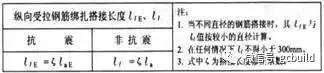 纵向受拉钢筋绑扎搭接长度 l lE、l l
抗 震
非 抗 震
l lE = ζ l aE
l l = ζ l a
注:
1. 当不同直径的钢筋搭接时,其 l lE 与
l l 值按较小的直径计算。
2. 在任何情况下 l l 不得小于300mm.
3. 式中 ζ 为